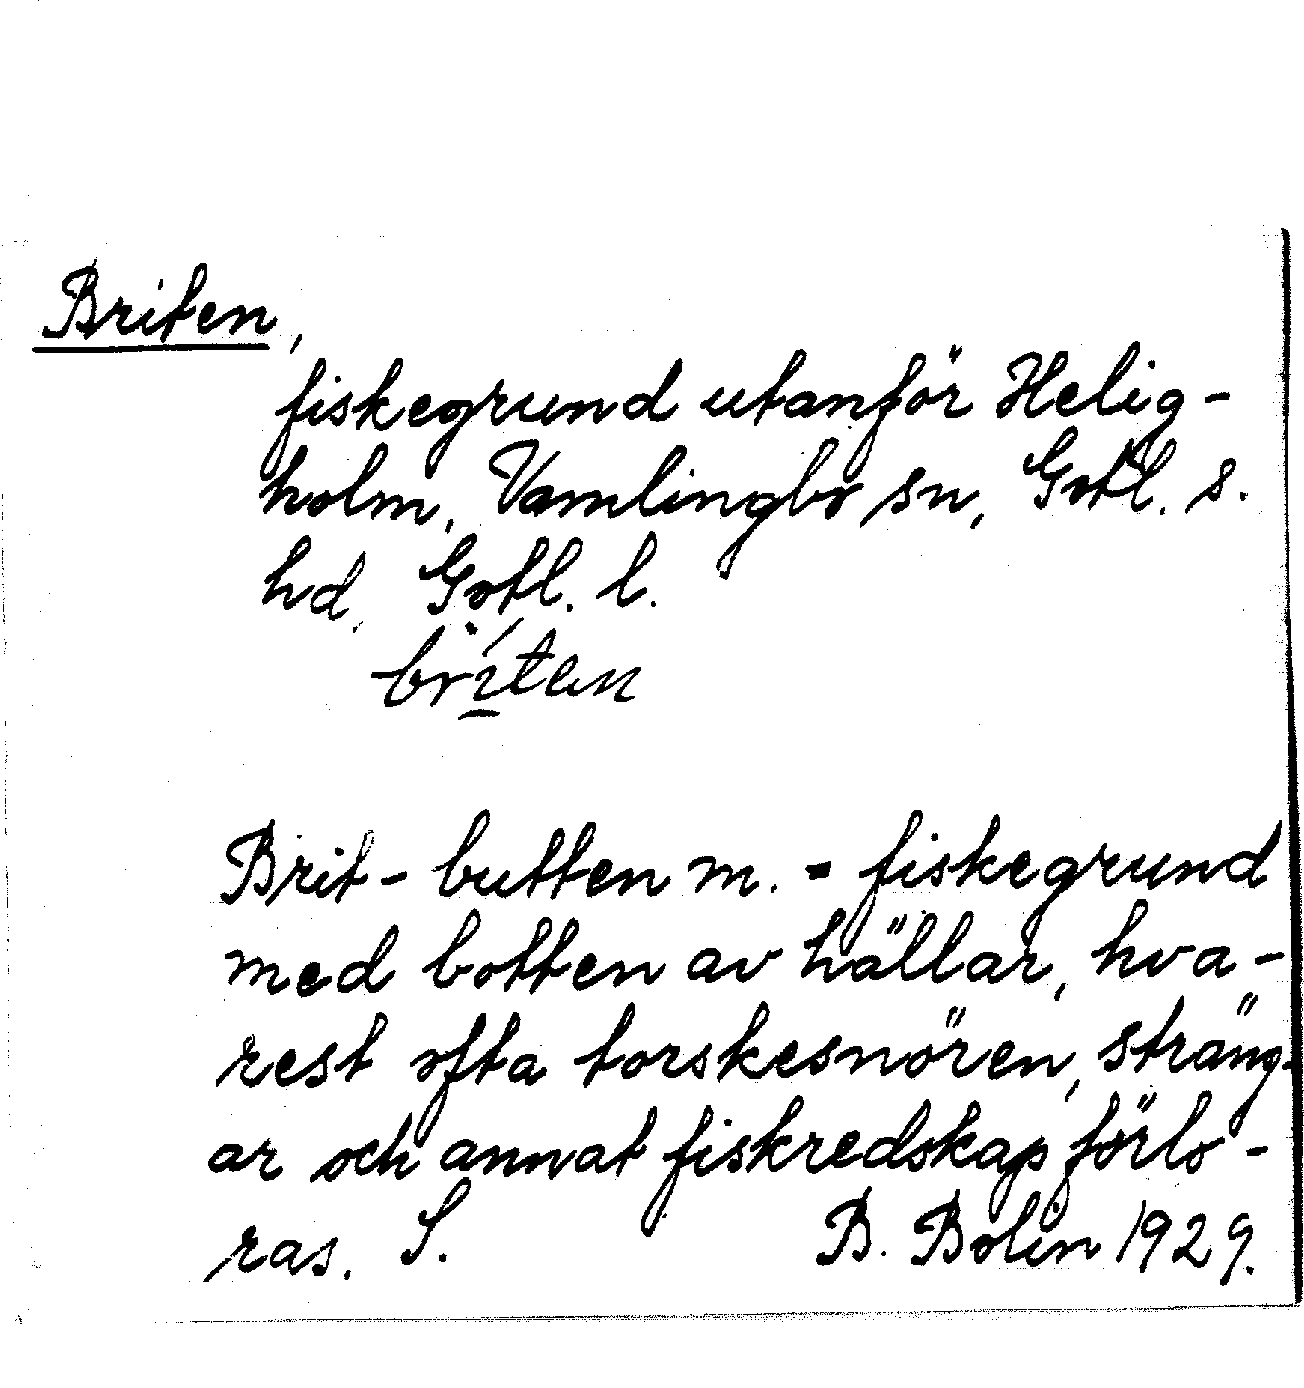 Briten,
fiskegrund utanför Helig-
holm, Vamlingbo sn, Gotl. s.
hd, Gotl. l.
briten
Brit-butten m. = fiskegrund
med botten av hällar, hva-
rest ofta torskesnören, sträng-
ar och annat fiskredskap förlo-
ras. S. B. Bolin 1929.